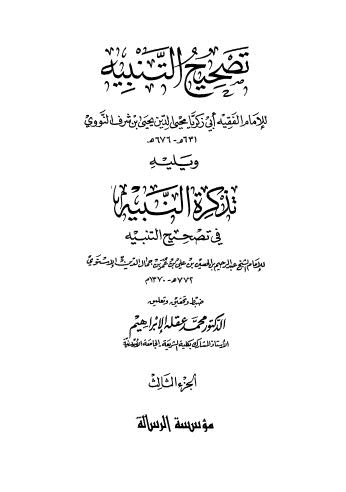 تصحيح التنبيه
للإمام الفقيه أبي زكريا محيي الدين يحيى بن شرف النووي
٦٣١هـ - ٦٧٦هـ
ويليه
تذكرة النبيه
في تصحيح التنبيه
للإمام الشيخ عبد الرحيم بن الحسين بن علي بن عمر بن جمال الدين الإسنوي
٧٧٢هـ - ١٣٧٠م
ضبط وتحقيق وتعليق
الدكتور محمد عقله الإبراهيم
الأستاذ المشارك بكلية الشريعة، الجامعة الأردنية
الجزء الثالث
مؤسسة الرسالة